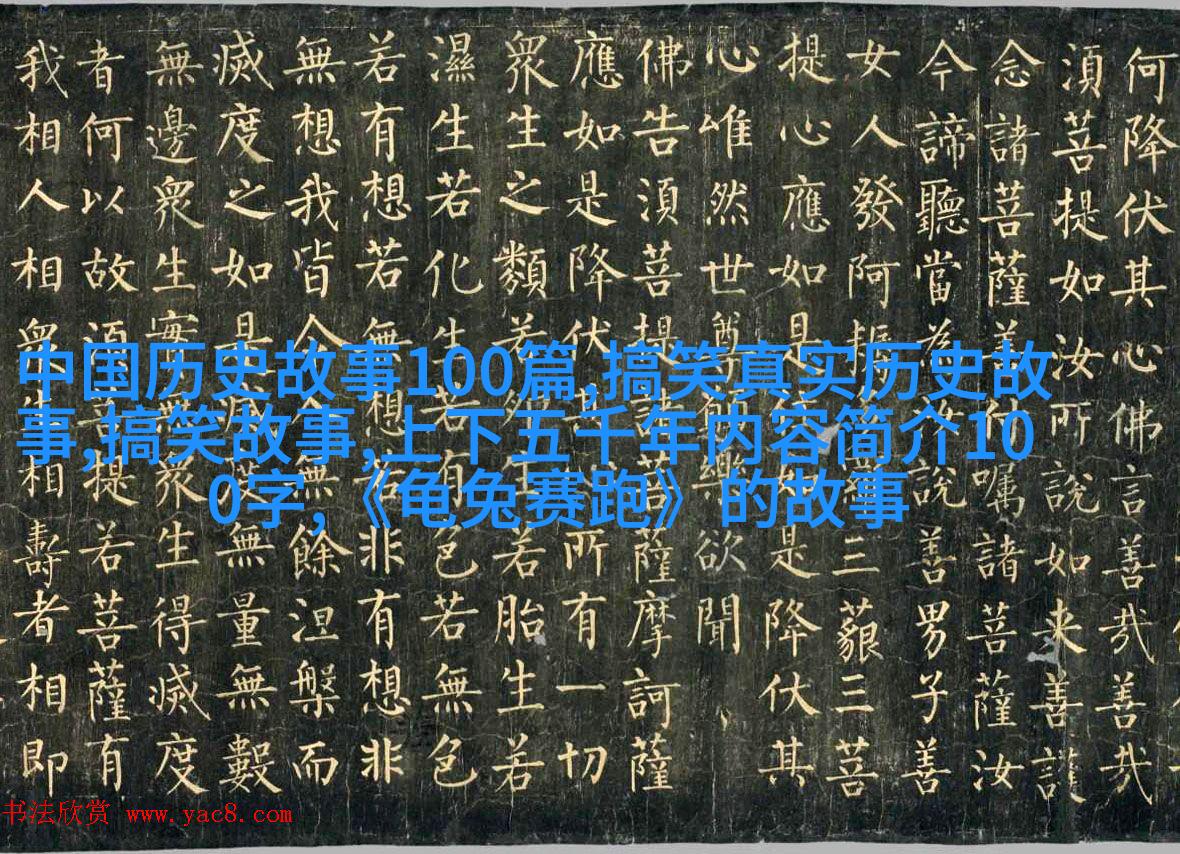 何降伏其心佛言善哉善哉
須菩提如汝所說如来善護
念諸菩薩善付嘱諸菩薩汝
今諦聽當為汝說善男子善
女人發阿耨三藐三菩
提心應如是如是降伏其
心唯然世尊願樂欲聞
佛告須菩提諸菩薩摩訶薩
應如是降伏其所有一切
衆生之類若卵生若胎生若
濕生若化生若有色若無色
若有想若無想若非有想非
無想我皆令無餘涅槃而
滅度之如是滅度無量無數
無邊衆生實無衆生得滅度
者何以故須菩提若菩薩有
我相人相衆生相壽者相即
中国历史故事100篇,搞笑真实历史故
事,搞笑故事,上下五千年内容简介10
0字,《龟兔赛跑》的故事
书法欣赏 www.yac8.com